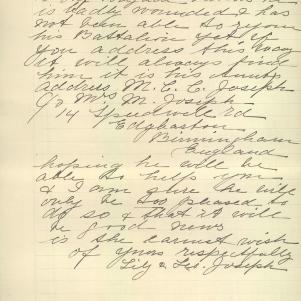 is badly wounded & has
not been able to rejoin
his Battalion yet if
you address this way
it will always find
him it is his Aunts
address M. E. C. Joseph
c/o Mrs M. Joseph
14 Speedwell Rd
Edgbaston
Birmingham
England
hoping he will be
able to help you
& I am shure he will
only be too pleased to
do so & that it will
be good news
is the earnest wish
of yours respectfully
Joseph